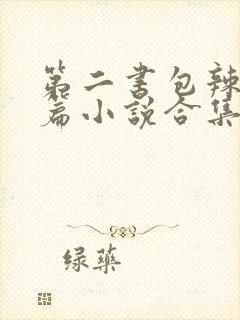 第二书包辣
篇小说合集
绿药